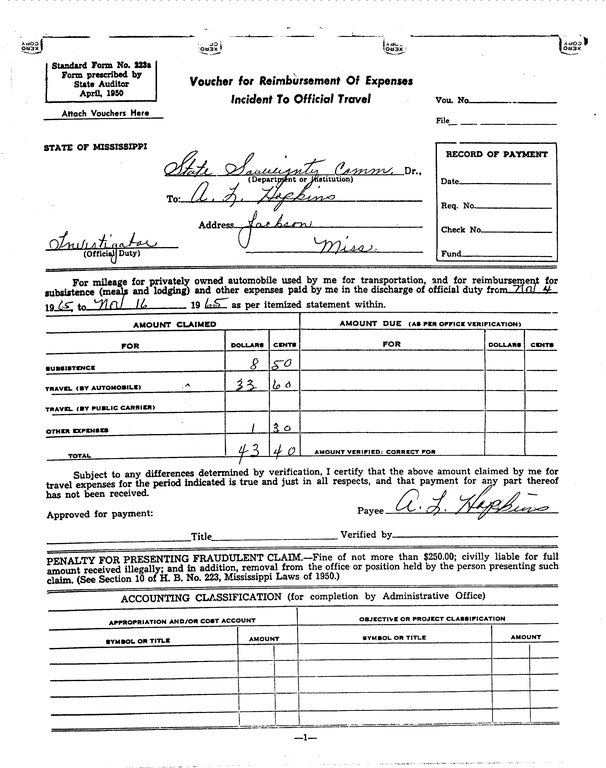 XERO COPY
XERO COPY
XERO COPY
XERO COPY
Standard Form No. 223a
Form prescribed by
State Auditor
April, 1950
Attach Vouchers Here
Voucher for Reimbursement Of Expenses
Incident To Official Travel
Vou. No.
File
STATE OF MISSISSIPPI
State Sovereignty Comm. Dr.,
(Department or Institution)
To: A. L. Hopkins
Address Jackson
Miss.
Investigator
(Official Duty)
RECORD OF PAYMENT
Date
Req. No.
Check No.
Fund
For mileage for privately owned automobile used by me for transportation, and for reimbursement for
subsistence (meals and lodging) and other expenses paid by me in the discharge of official duty from Nov 4
1965 to Nov 16 1965 as per itemized statement within.
AMOUNT CLAIMED AMOUNT DUE (AS PER OFFICE VERIFICATION)
FOR DOLLARS CENTS FOR DOLLARS CENTS
SUBSISTENCE 8 50
TRAVEL (BY AUTOMOBILE) 33 60
TRAVEL (BY PUBLIC CARRIER)
OTHER EXPENSES 1 30
TOTAL 43 40 AMOUNT VERIFIED: CORRECT FOR
Subject to any differences determined by verification, I certify that the above amount claimed by me for
travel expenses for the period indicated is true and just in all respects, and that payment for any part thereof
has not been received.
Payee A. L. Hopkins
Approved for payment:
Title Verified by
PENALTY FOR PRESENTING FRAUDULENT CLAIM.—Fine of not more than $250.00; civilly liable for full
amount received illegally; and in addition, removal from the office or position held by the person presenting such
claim. (See Section 10 of H. B. No. 223, Mississippi Laws of 1950.)
ACCOUNTING CLASSIFICATION (for completion by Administrative Office)
APPROPRIATION AND/OR COST ACCOUNT OBJECTIVE OR PROJECT CLASSIFICATION
SYMBOL OR TITLE AMOUNT SYMBOL OR TITLE AMOUNT
—1—